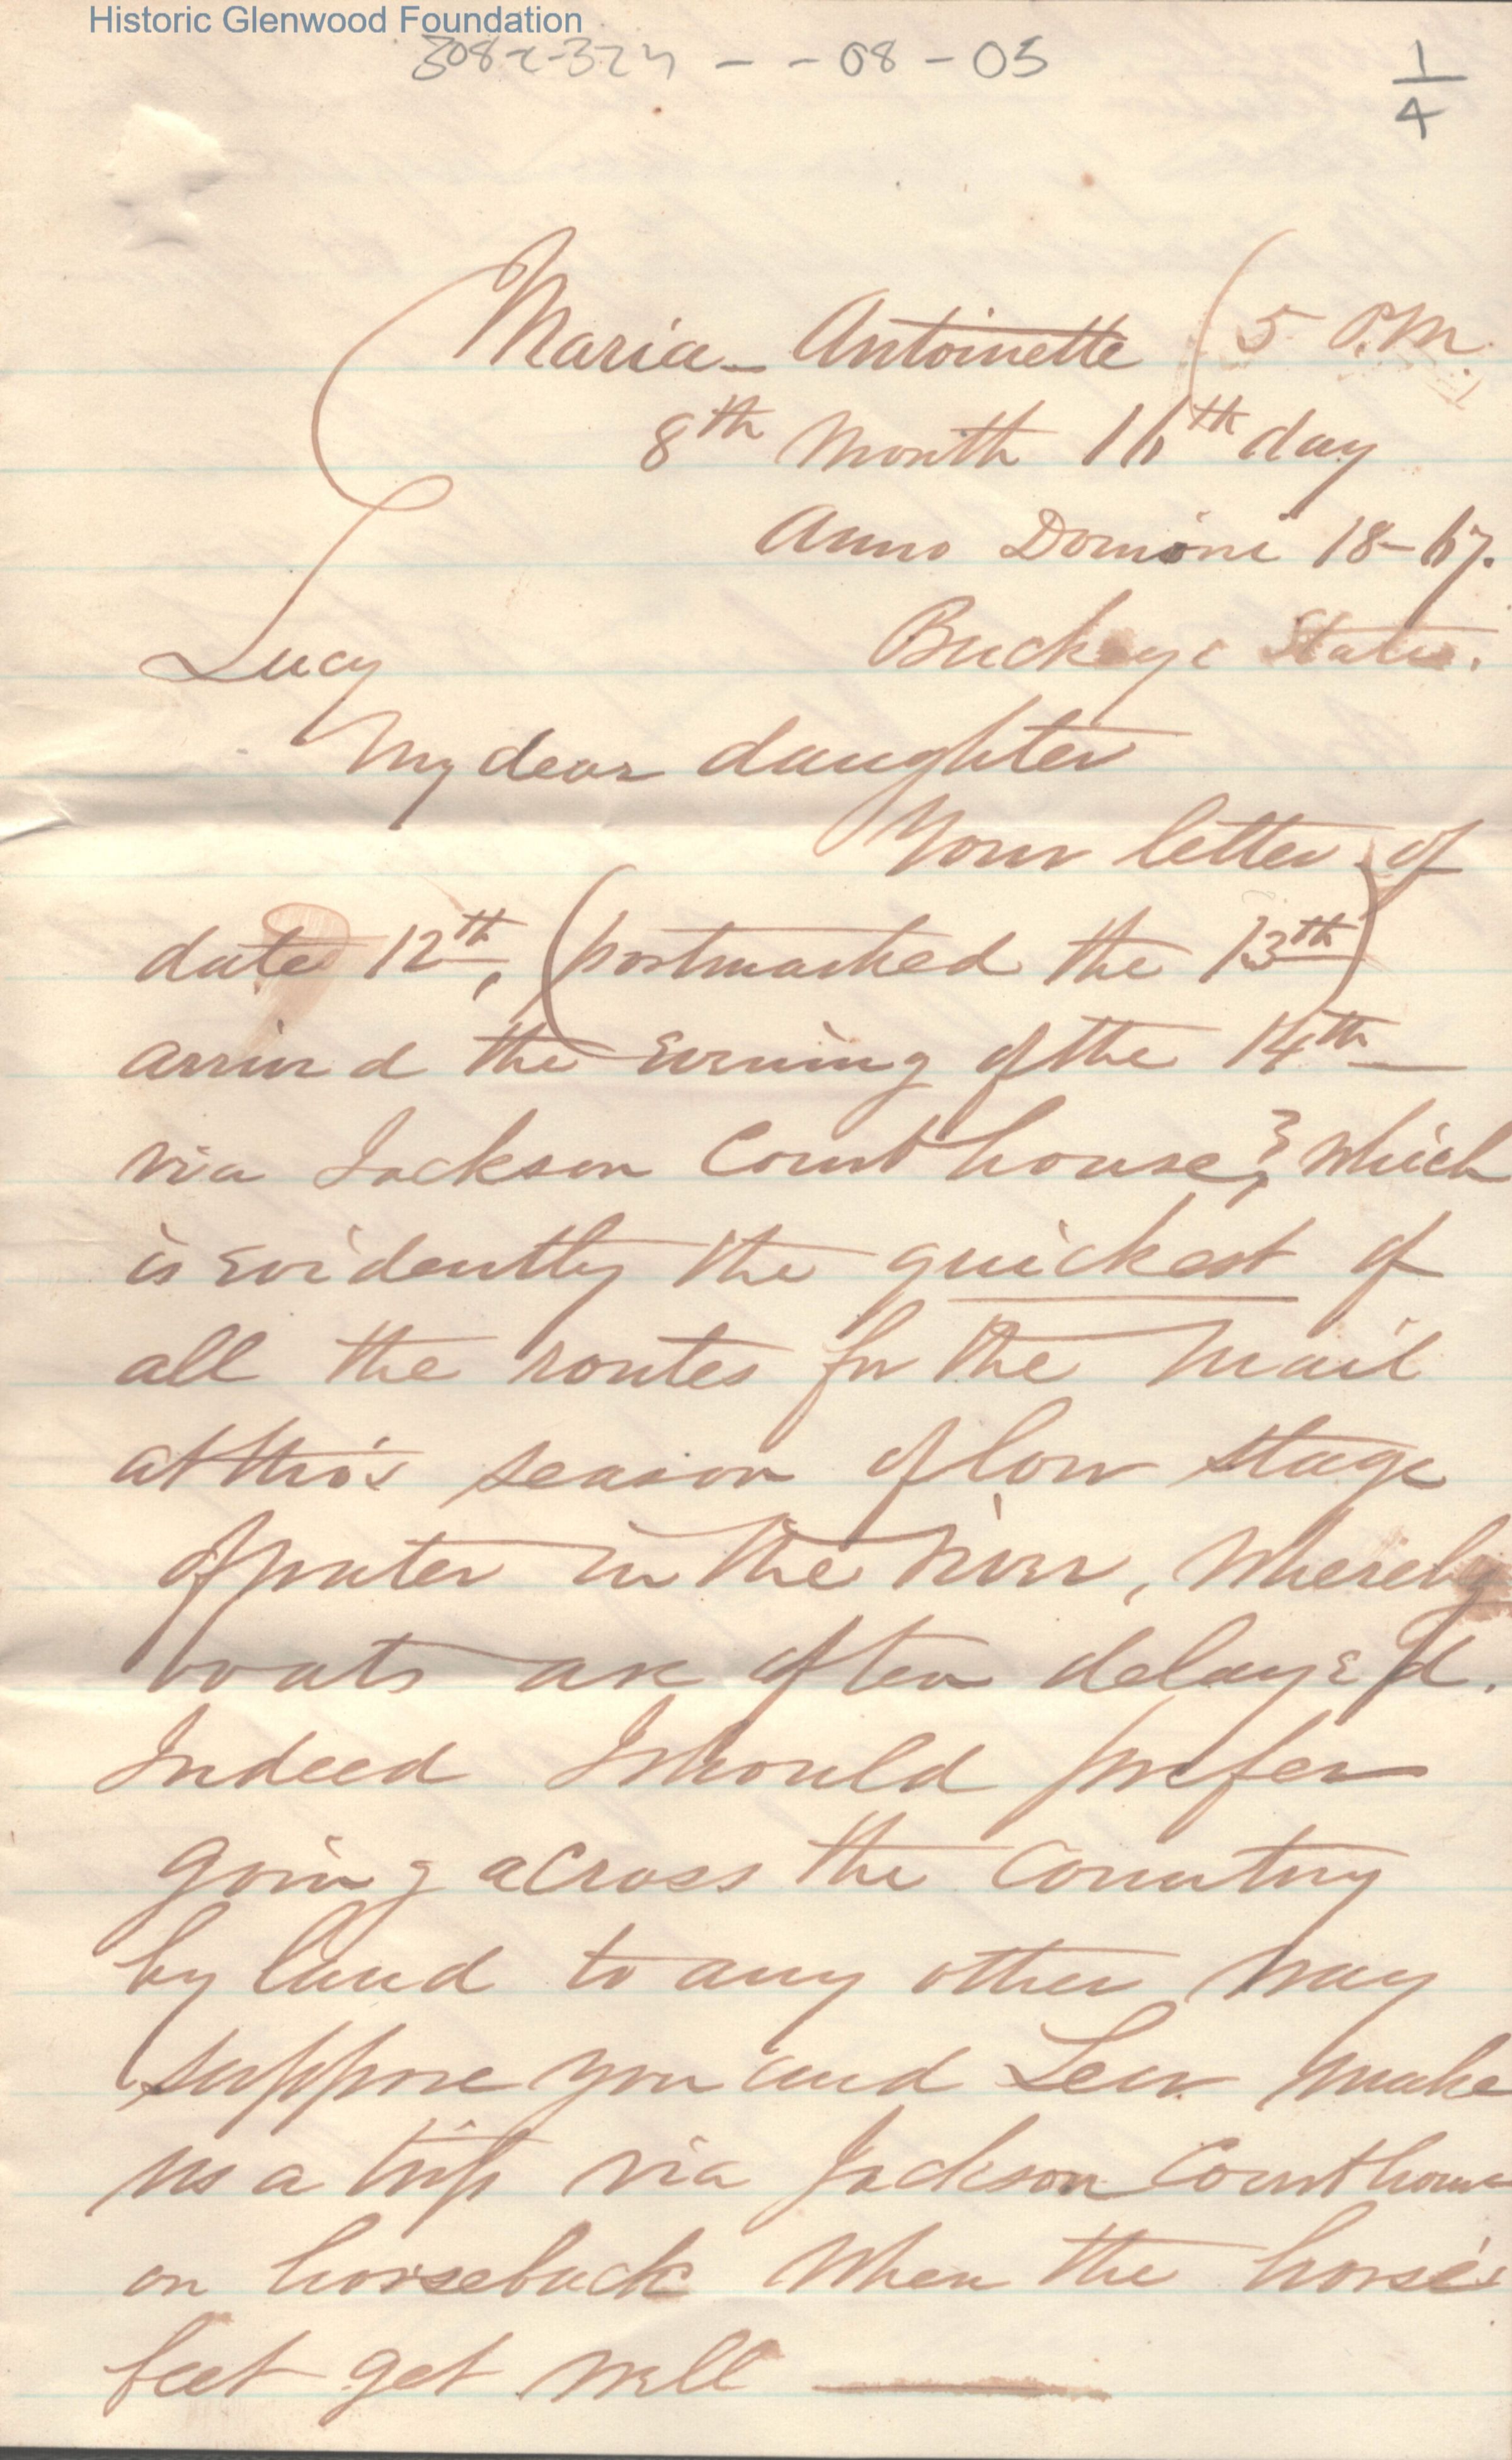 Historic Glenwood Foundation
- - 08 - 05
1/4
Maria- Antoinette (5 P.M.
8th Month 16th day
Anno Domini 18-67.
Buckeye State.
Lucy
My dear daughter
Your letter of
date 12th, (postmarked the 13th)
arrived the Evening of the 14th
via Jackson Court house, & which
is Evidently the quickest of
all the routes for the mail
at this season of low stage
of water in the river, whereby
boats are often delayed.
Indeed I should prefer
going across the country
by land to any other way
suppose you and Lew make
us a trip via Jackson Court house
on horseback when the horse's
feet get well